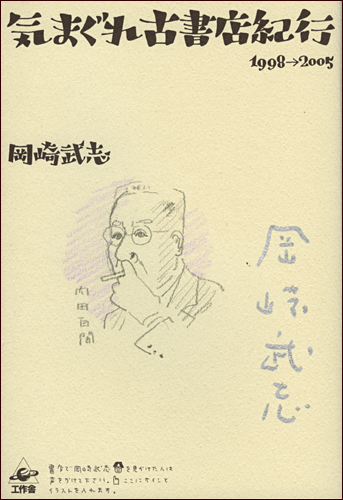 気まぐれ古書店紀行
1998→2005
岡崎武志
内田百閒
岡崎武志
工作舎
書店で岡崎武志を見かけた人は
声をかけて下さい。ここにサインと
イラストを入れます。